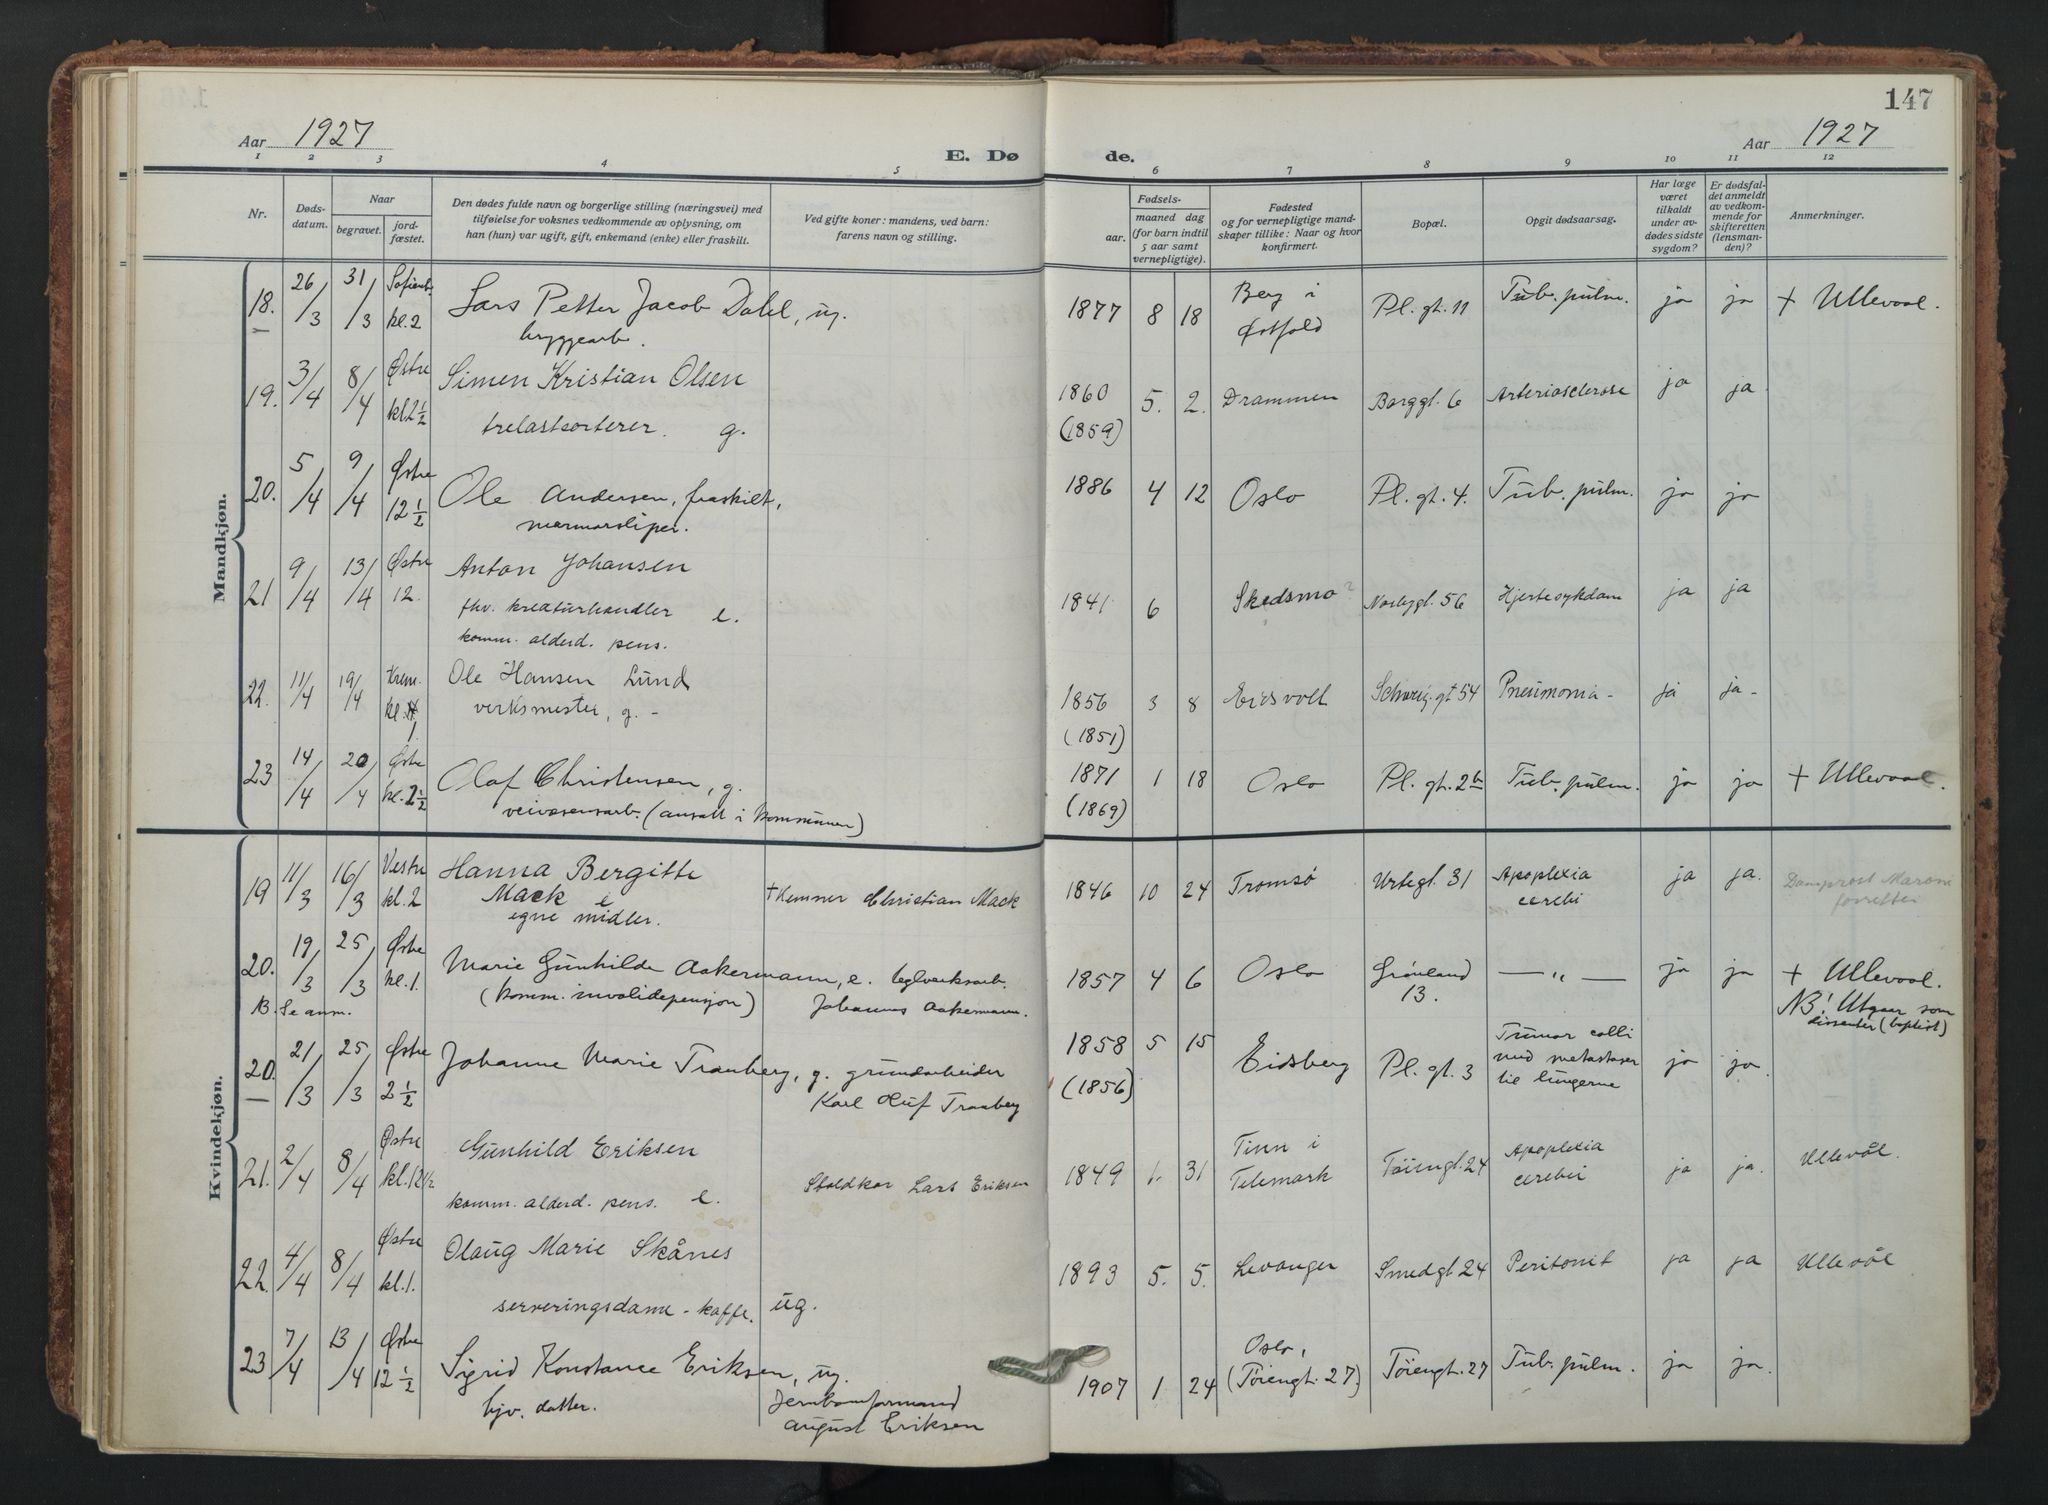 147
Aar 1927
E. Døde.
Aar 1927
1 2 3 4 5 6 7 8 9 10 11 12
Nr.
Dødsdatum.
Naar
begravet.
jordfæstet.
Den dødes fulde navn og borgerlige stilling (næringsvei) med
tilføielse for voksnes vedkommende av oplysning, om
han (hun) var ugift, gift, enkemand (enke) eller fraskilt.
Ved gifte koner: mandens, ved barn:
farens navn og stilling.
Fødsels-
aar.
maaned dag
(for barn indtil
5 aar samt
vernepligtige).
Fødested
og for vernepligtige mand-
skaper tillike: Naar og hvor
konfirmert.
Bopæl.
Opgit dødsaarsag.
Har læge
været
tilkaldt
under av-
dødes sidste
sygdom?
Er dødsfal-
det anmeldt
av vedkom-
mende for
skifteretten
(lensman-
den)?
Anmerkninger.
Mandkjøn.
18. 26/3 31/3 Sofienb. kl. 2 Lars Petter Jacob Dahl, ug. 1877 8 18 Berg i Østfold Pl. gt. 11 Tub. pulm. ja ja + Ullevaal.
bryggearb.
19. 3/4 8/4 Østre kl. 2 1/2 Simen Kristian Olsen 1860 5. 2. Drammen Borggt. 6 Arteriosclerose ja ja
trelastsorterer. g. (1859)
20. 5/4 9/4 Østre 12 1/2 Ole Andersen, fraskilt, 1886 4 12 Oslo Pl. gt. 4. Tub. pulm. ja ja
marmorsliper.
21 9/4 13/4 Østre 12. Anton Johansen 1841 6 Skedsmo? Norbygt. 56 Hjertesykdom ja ja
fhv. kreaturhandler e.
komm. alderd. pens.
22. 11/4 19/4 Krem. kl. 1 Ole Hansen Lund 1856 3 8 Eidsvoll Schweig. gt 54 Pneumonia - ja ja -
verksmester, g. - (1851)
23 14/4 20/4 Østre kl. 2 1/2 Olaf Christensen, g. 1871 1 18 Oslo Pl. gt. 2b Tub. pulm. ja ja + Ullevaal.
veivæsensarb. (ansatt i kommunen) (1869)
Kvindekjøn.
19 11/3 16/3 Vestre kl. 2 Hanna Bergitte + Kemner Christian Mack 1846 10 24 Tromsø Urtegt. 31 Apoplexia cerebri ja ja. Domprost Maroni forretter
Mack e
egne midler.
20. 19/3 25/3 Østre kl. 1. Marie Gunhilde Aakermann, e. teglverksarb. 1857 4 6 Oslo Grønland 13. — „ — ja ja + Ullevaal.
(komm. invalidepensjon) Johannes Aakermann. NB! Utgaar som
NB. Se anm. dissenter (baptist)
20. 21/3 25/3 Østre 2 1/2 Johanne Marie Tranberg, g. grundarbeider 1858 5 15 Eidsberg Pl. gt. 3 Tumor colli med metastaser til lungerne ja ja.
Karl Oluf Tranberg (1856)
21. 2/4 8/4 Østre kl. 12 1/2 Gunhild Eriksen Stoldkar Lars Eriksen 1849 1. 31 Tinn i Telemark Tøiengt. 24 Apoplexia cerebri ja ja. Ullevål.
komm. alderd. pens. e.
22. 4/4 8/4 Østre kl. 1. Olaug Marie Skånes 1893 5. 5. Levanger Smedgt 24 Peritonit ja ja Ullevål
serveringsdame - kaffe. ug.
23 7/4 13/4 Østre 12 1/2 Sigrid Konstance Eriksen, ug. 1907 1 24 Oslo, (Tøiengt. 27) Tøiengt. 27 Tub. pulm. ja ja.
hjv. datter. Jernbaneformand
August Eriksen